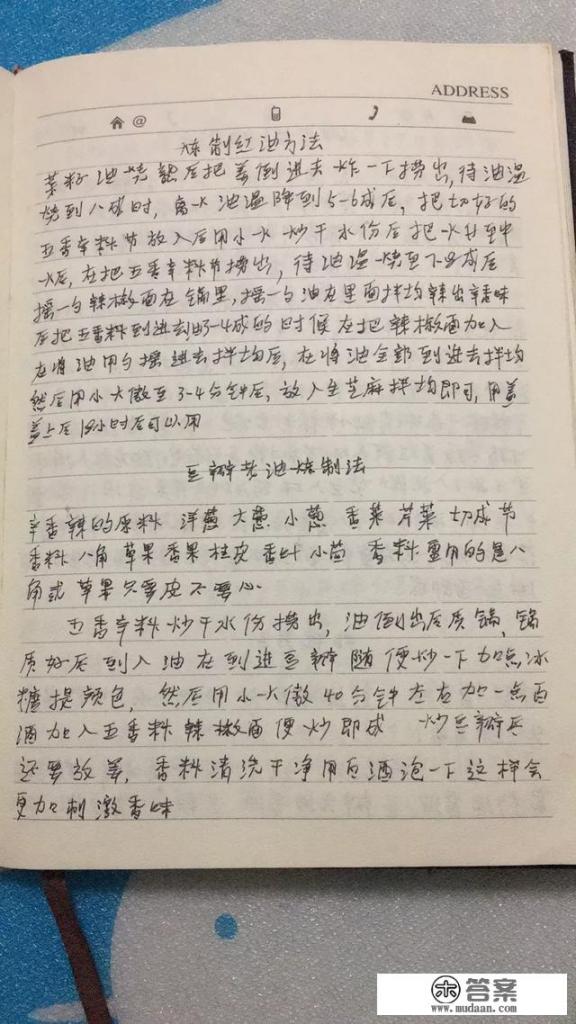 ADDRESS
@
炼制红油方法
菜籽油烧熟后把姜倒进去炸一下捞出，待油温
烧到八成时，离火油温降到5-6成后，把切好的
五香辛料节放入后用小火炒干水份后把火升至中
火后，在把五香辛料节捞出，待油温烧至下8成后
摇一勺辣椒面在锅里，摇一勺油在里面拌均辣出辛香味
后把五香料到进去到3-4成的时候在把辣椒面加入
在将油用勺摇进去拌均后，在将油全部到进去拌均
然后用小火微至3-4分钟后，放入生芝麻拌均即可，用盖
盖上后12小时后可以用
豆瓣老油烧制法
辛香辣的原料 洋葱 大葱 小葱 香菜 芹菜 切成节
香料 八角 草果 香果 桂皮 香叶 小茴 香料要用的是八
角或草果只要皮不要心.
五香辛料炒干水份捞出，油倒出后质锅，锅
质好后到入油在到进豆瓣随便炒一下加点冰
糖提颜色，然后用小火微40分钟左右加一点白
酒加入五香料辣椒面便炒即成 炒豆瓣后
还要放姜，香料清洗干净用白酒泡一下这样会
更加刺激香味
答案
www.mudaan.com